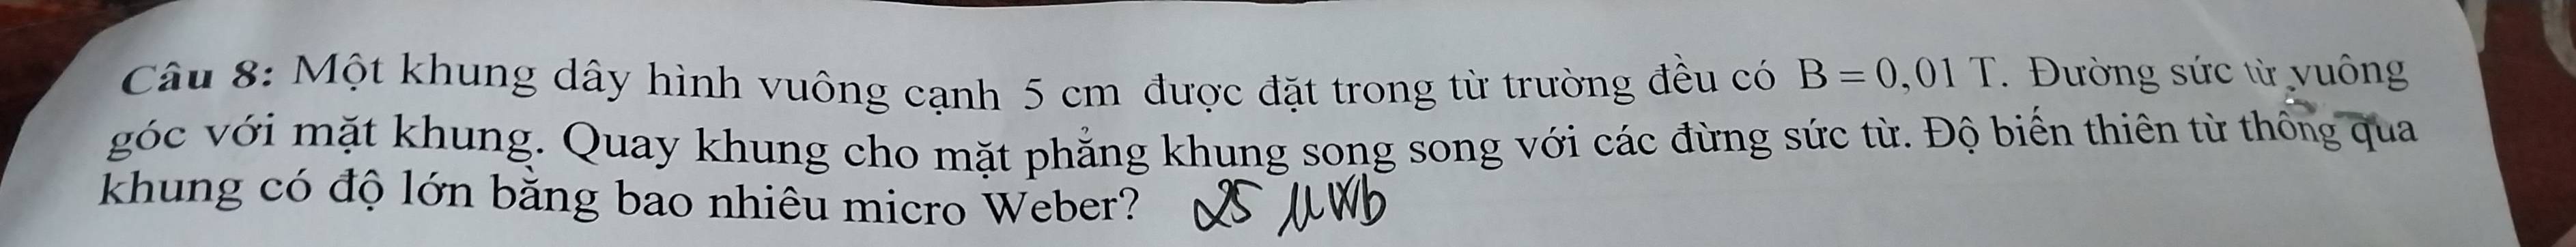 Câu 8: Một khung dây hình vuông cạnh 5 cm được đặt trong từ trường đều có B = 0,01 T. Đường sức từ vuông
góc với mặt khung. Quay khung cho mặt phẳng khung song song với các đừng sức từ. Độ biến thiên từ thông qua
khung có độ lớn bằng bao nhiêu micro Weber? 25 μWb